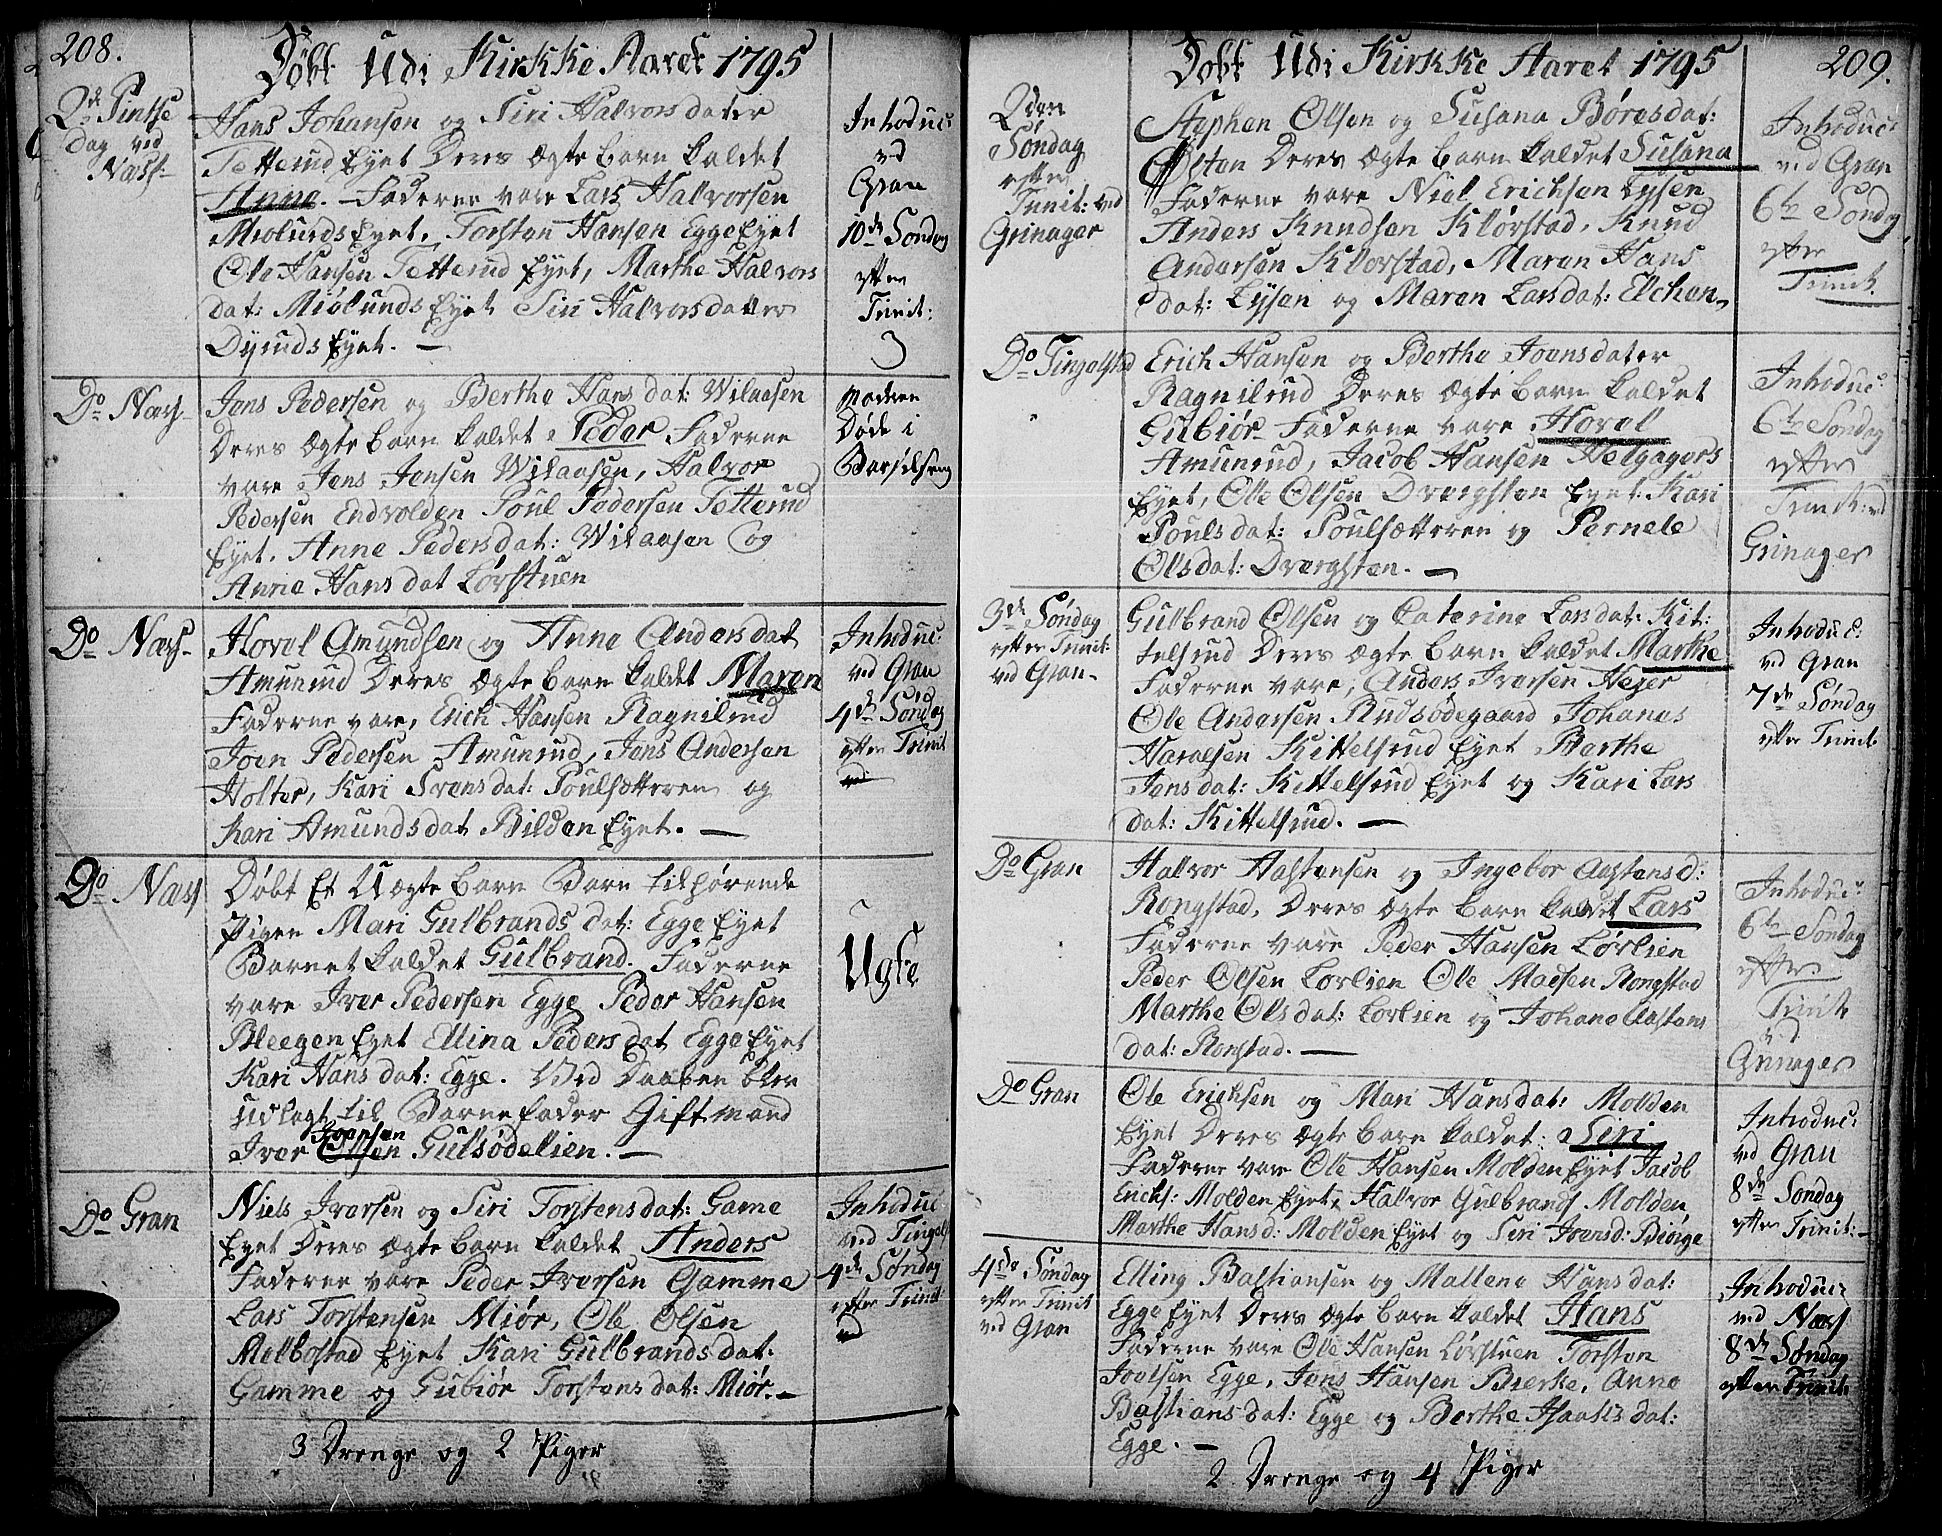 208.
Døbt Udi Kirkke Aaret 1795
2de Pintse
Dag ved
Næss:
Hans Johansen og Siri Halvorsdater
Tetterud Eyet Deres Ægte barn kaldet
Anne. - Faderne vare Lars Halvorsen
Miølunds Eyet, Torsten Hansen Egge Eyet
Ole Hansen Tetterud Eyet, Marthe Halvors
dat: Miølunds Eyet Siri Halvorsdatter
Dynnds Eyet. -
Introduc:
ved
Gran
10de Søndag
efter
Trinit:
Do Næss-
Jens Pedersen og Berthe Hansdat: Wilaasen
Deres Ægte barn kaldet Peder Faderne
vare Jens Jensen Wilaasen, Halvor
Pedersen Endvolden Poul Pedersen Tetterud
Eyet, Anne Pedersdat: Wilaasen og
Anne Hansdat Lørstuen
Moderen
Døde i
Barselseng
Do Næss-
Hovel Amundsen og Anne Andersdat
Amunrud Deres Ægte barn kaldet Maren
Faderne vare, Erich Hansen Ragnilrud
Joen Pedersen Amunrud, Jens Andersen
Holter, Kari Svensdat: Poulsætteren og
Kari Amundsdat Bilden Eyet. -
Introduc:
ved Gran
4de Søndag
efter Trinit
ved
Do Næss
Døbt Et Uægte barn Barn tilhørende
Pigen Mari Gulbrandsdat: Egge Eyet
Barnet kaldet Gulbrand. Faderne
vare Iver Pedersen Egge Peder Hansen
Bleegen Eyet Ellina Pedersdat Egge Eyet
Kari Hansdat: Egge. Ved Daaben blev
udlagt til Barnefader Gift mand
Joensen
Iver Olsen Gulsødelien. -
Ugte
Do Gran
Niels Iversen og Siri Torstensdat: Game
Eyet Deres Ægte barn kaldet Anders
Faderne vare Peder Iversen Gamme
Lars Torstensen Miør, Ole Olsen
Melbostad Eyet Kari Gulbrandsdat:
Gamme og Gubiør Torstensdat: Miør. -
Introduc
ved Tingel
4de Søndag
efter Trinit
ved
3 Drenge og 2 Piger
Døbt Udi Kirkke Aaret 1795
209.
2den
Søndag
efter
Trinit: ved
Grinager
Stephen Olsen og Susana Børesdat:
Østen Deres Ægte barn kaldet Susana
Faderne vare Niel Erichsen Lysen
Anders Knudsen Klørstad, Knud
Andersen Klorstad, Maren Hans
dat: Lysen og Maren Larsdat: Elchen
Introduc:
ved Gran
6te Søndag
efter
Trinit.
Do Tingelstad
Erich Hansen og Berthe Joensdater
Ragnilrud Deres Ægte barn kaldet
Gubiør Faderne vare Hovel
Amunrud, Jacob Hansen Helgagers
Eyet, Ole Olsen Dvergsten Eyet: Kari
Poulsdat: Poulsætteren og Pernele
Olsdat: Dvergsten. -
Introduc:
6te Søndag
efter
Trinit: ved
Grinager
3de Søndag
efter Trinit:
ved Gran-
Gulbrand Olsen og Caterine Larsdat: Kit:
telsrud Deres Ægte barn kaldet Marthe
Faderne vare, Anders Iversen Hejer
Ole Andersen Rudsødegaard Johanes
Haraelsen Kittelsrud Eyet Berthe
Jensdat: Kittelsrud Eyet og Kari Lars
dat: Kittelsrud. -
Introduc:
ved Gran
7de Søndag
efter Trinit
Do Gran
Hallvor Aastensen og Ingebor Aastensd:
Rongstad, Deres Ægte barn kaldet Lars
Faderne vare Peder Hansen Lørlien
Peder Olsen Lorlien Ole Madsen Rongstad
Marthe Olsdat: Lorlien og Johane Aastens
dat: Ronstad. -
Introduc:
6te Søndag
efter
Trinit
ved
Grinager
Do Gran
Ole Erichsen og Mari Hansdat: Molden
Eyet Deres Ægte barn kaldet: Siri
Faderne vare Ole Hansen Molden Eyet Jacob
Erichs: Molden Eyet, Hallvor Gulbrands Molden
Marthe Hansd: Molden Eyet og Siri Iversd: Biørge
Introduc:
ved Gran
8de Søndag
efter Trinit: -
4de Søndag
efter Trinit
ved Gran
Elling Bastiansen og Mallene Hansdat:
Egge Eyet Deres Ægte barn kaldet Hans
Faderne vare Ole Hansen Lørstuen Torsten
Joelsen Egge, Jens Hansen Bierke, Anne
Bastiansdat: Egge og Berthe Haaelsdat:
Egge. -
Introduc:
ved Næss
8de Søndag
efter Trinit:
2 Drenge og 4 Piger